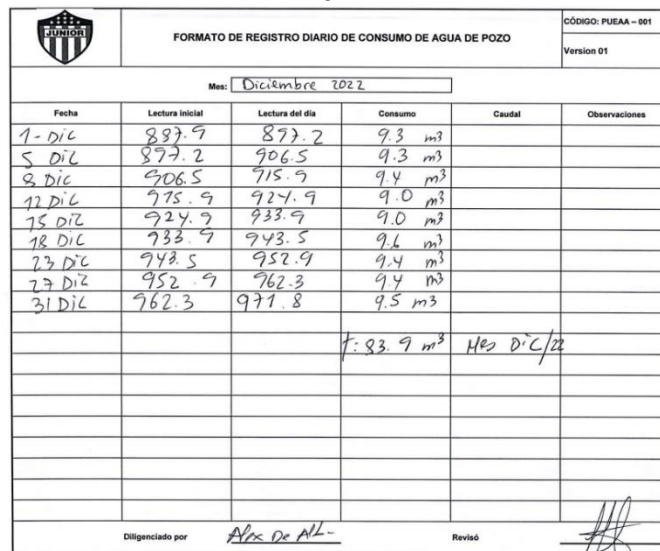 JUNIOR
FORMATO DE REGISTRO DIARIO DE CONSUMO DE AGUA DE POZO
CÓDIGO: PUEAA – 001
Version 01
Mes: Diciembre 2022
Fecha Lectura inicial Lectura del día Consumo Caudal Observaciones
1 - Dic 887.9 897.2 9.3 m3
5 Dic 897.2 906.5 9.3 m3
8 Dic 906.5 915.9 9.4 m3
12 Dic 915.9 924.9 9.0 m3
15 Dic 924.9 933.9 9.0 m3
18 Dic 933.9 943.5 9.6 m3
23 Dic 943.5 952.9 9.4 m3
27 Dic 952.9 962.3 9.4 m3
31 Dic 962.3 971.8 9.5 m3
t: 83.9 m3 Mes Dic/22
Diligenciado por Alex De
Revisó